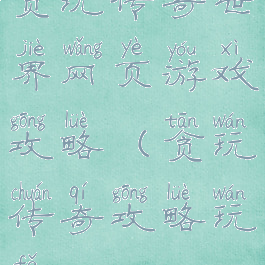 贪玩传奇世
jiè wǎng yè yóu xì
界网页游戏
gōng lüè tān wán
攻略（贪玩
chuán qí gōng lüè wán
传奇攻略玩
fǎ